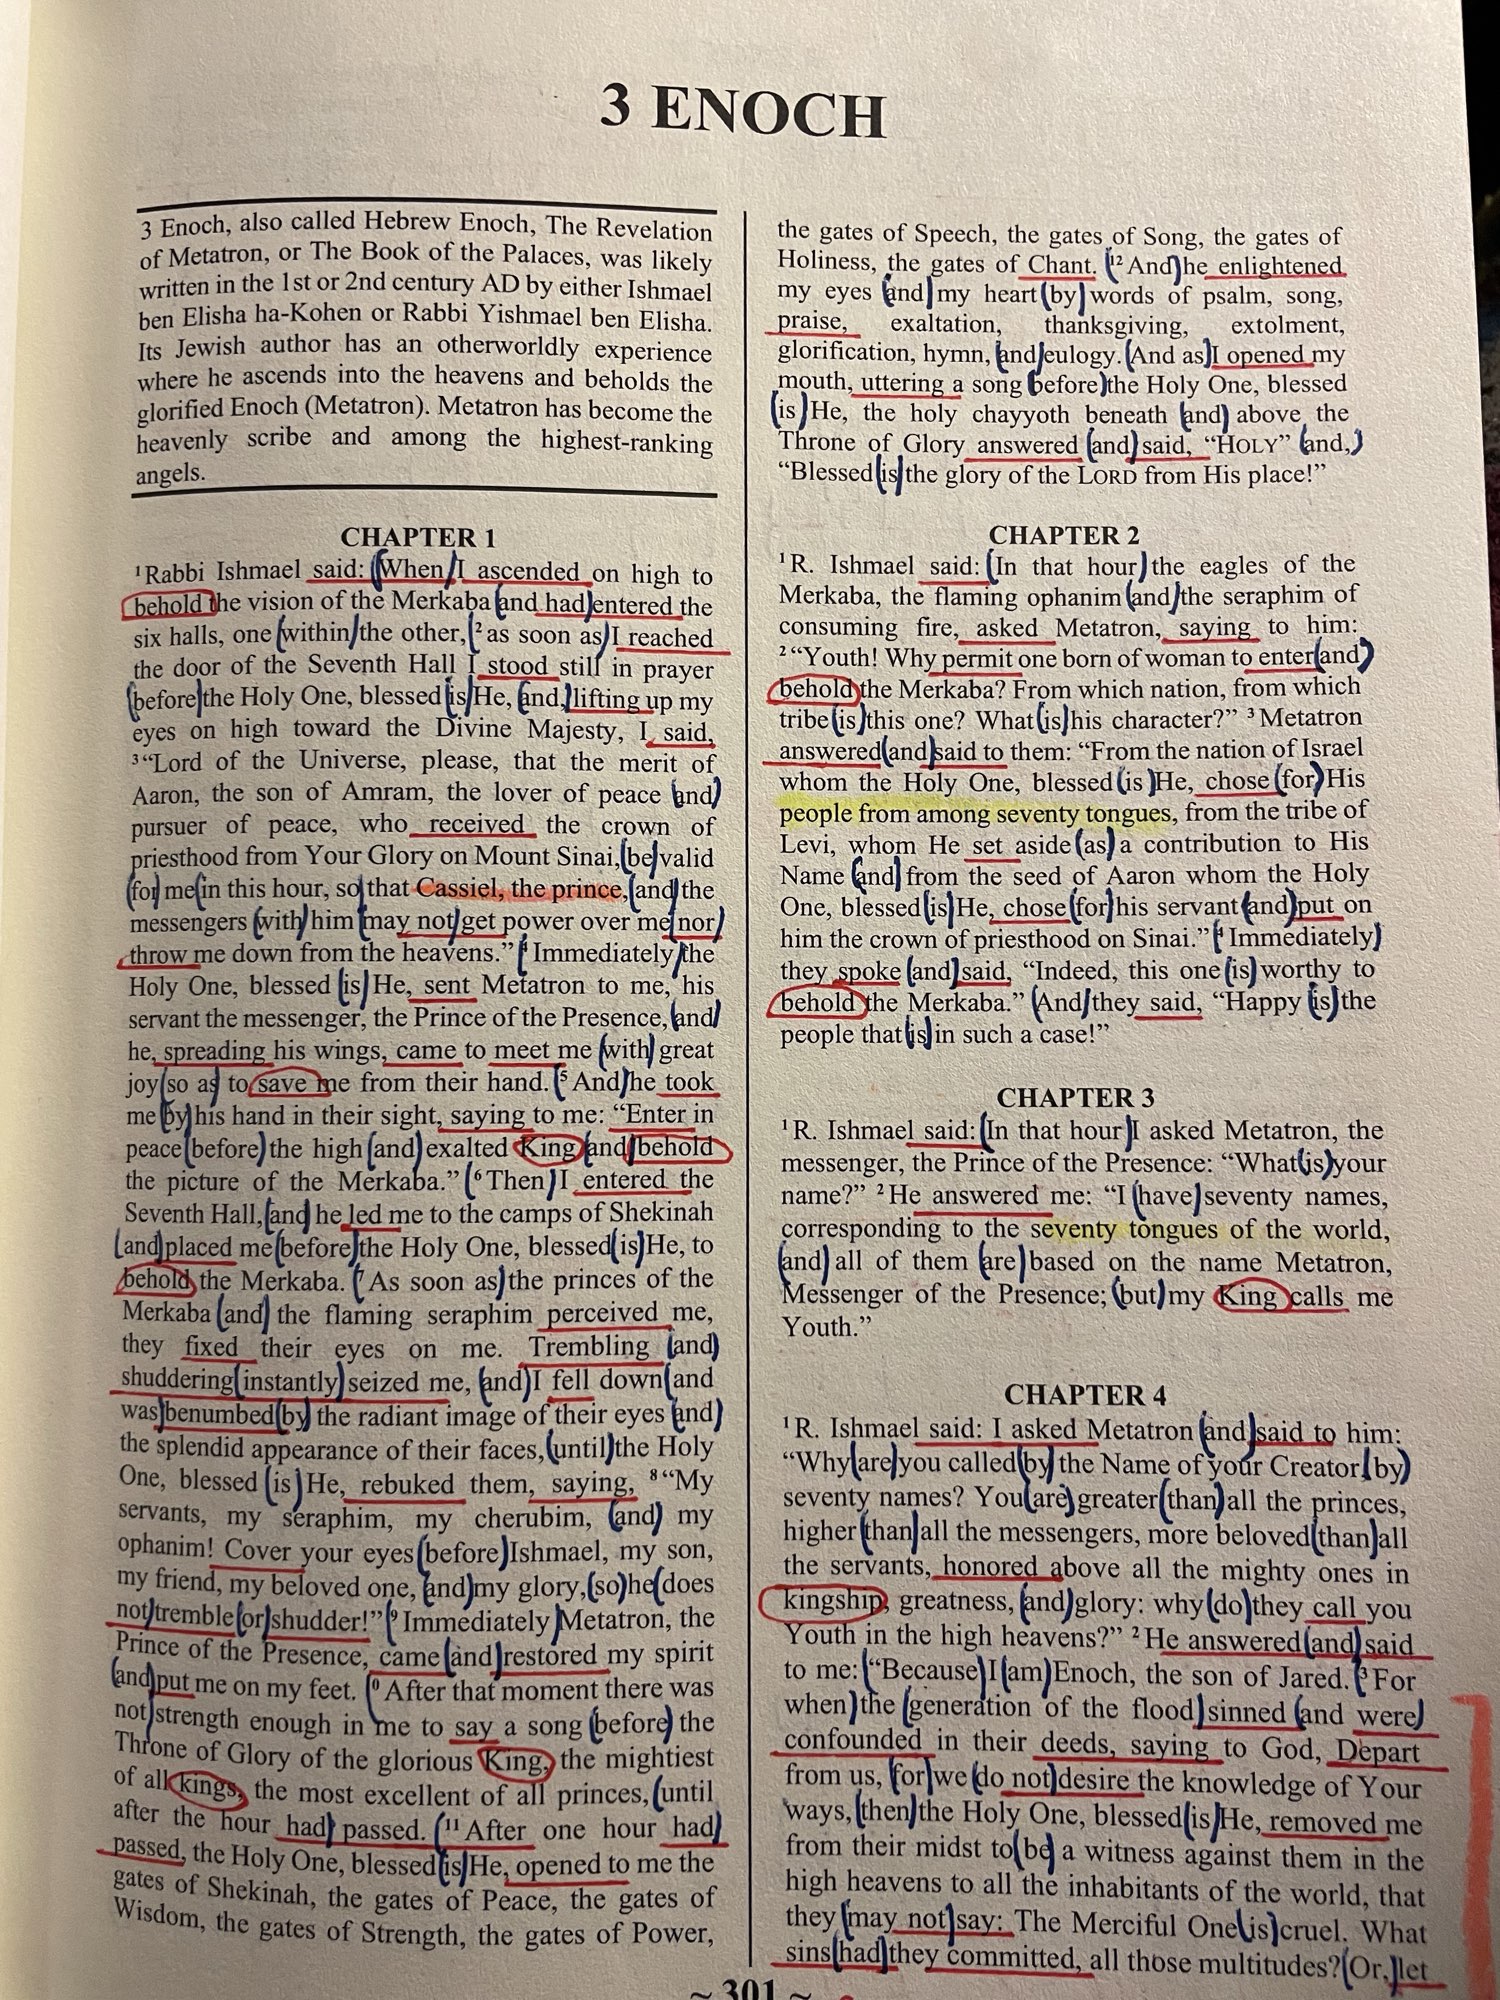 3 ENOCH
3 Enoch, also called Hebrew Enoch, The Revelation
of Metatron, or The Book of the Palaces, was likely
written in the 1st or 2nd century AD by either Ishmael
ben Elisha ha-Kohen or Rabbi Yishmael ben Elisha.
Its Jewish author has an otherworldly experience
where he ascends into the heavens and beholds the
glorified Enoch (Metatron). Metatron has become the
heavenly scribe and among the highest-ranking
angels.
CHAPTER 1
1 Rabbi Ishmael said: When I ascended on high to
behold the vision of the Merkaba and had entered the
six halls, one within the other, 2 as soon as I reached
the door of the Seventh Hall I stood still in prayer
before the Holy One, blessed is He, and, lifting up my
eyes on high toward the Divine Majesty, I said,
3 “Lord of the Universe, please, that the merit of
Aaron, the son of Amram, the lover of peace and
pursuer of peace, who received the crown of
priesthood from Your Glory on Mount Sinai, be valid
for me in this hour, so that Cassiel, the prince, and the
messengers with him may not get power over me nor
throw me down from the heavens.” 4 Immediately the
Holy One, blessed is He, sent Metatron to me, his
servant the messenger, the Prince of the Presence, and
he, spreading his wings, came to meet me with great
joy so as to save me from their hand. 5 And he took
me by his hand in their sight, saying to me: “Enter in
peace before the high and exalted King and behold
the picture of the Merkaba.” 6 Then I entered the
Seventh Hall, and he led me to the camps of Shekinah
and placed me before the Holy One, blessed is He, to
behold the Merkaba. 7 As soon as the princes of the
Merkaba and the flaming seraphim perceived me,
they fixed their eyes on me. Trembling and
shuddering instantly seized me, and I fell down and
was benumbed by the radiant image of their eyes and
the splendid appearance of their faces, until the Holy
One, blessed is He, rebuked them, saying, 8 “My
servants, my seraphim, my cherubim, and my
ophanim! Cover your eyes before Ishmael, my son,
my friend, my beloved one, and my glory, so he does
not tremble or shudder!” 9 Immediately Metatron, the
Prince of the Presence, came and restored my spirit
and put me on my feet. 10 After that moment there was
not strength enough in me to say a song before the
Throne of Glory of the glorious King, the mightiest
of all kings, the most excellent of all princes, until
after the hour had passed. 11 After one hour had
passed, the Holy One, blessed is He, opened to me the
gates of Shekinah, the gates of Peace, the gates of
Wisdom, the gates of Strength, the gates of Power,
the gates of Speech, the gates of Song, the gates of
Holiness, the gates of Chant. 12 And he enlightened
my eyes and my heart by words of psalm, song,
praise, exaltation, thanksgiving, extolment,
glorification, hymn, and eulogy. And as I opened my
mouth, uttering a song before the Holy One, blessed
is He, the holy chayyoth beneath and above the
Throne of Glory answered and said, “HOLY” and,
“Blessed is the glory of the LORD from His place!”
CHAPTER 2
1 R. Ishmael said: In that hour the eagles of the
Merkaba, the flaming ophanim and the seraphim of
consuming fire, asked Metatron, saying to him:
2 “Youth! Why permit one born of woman to enter and
behold the Merkaba? From which nation, from which
tribe is this one? What is his character?” 3 Metatron
answered and said to them: “From the nation of Israel
whom the Holy One, blessed is He, chose for His
people from among seventy tongues, from the tribe of
Levi, whom He set aside as a contribution to His
Name and from the seed of Aaron whom the Holy
One, blessed is He, chose for his servant and put on
him the crown of priesthood on Sinai.” 4 Immediately
they spoke and said, “Indeed, this one is worthy to
behold the Merkaba.” And they said, “Happy is the
people that is in such a case!”
CHAPTER 3
1 R. Ishmael said: In that hour I asked Metatron, the
messenger, the Prince of the Presence: “What is your
name?” 2 He answered me: “I have seventy names,
corresponding to the seventy tongues of the world,
and all of them are based on the name Metatron,
Messenger of the Presence; but my King calls me
Youth.”
CHAPTER 4
1 R. Ishmael said: I asked Metatron and said to him:
“Why are you called by the Name of your Creator, by
seventy names? You are greater than all the princes,
higher than all the messengers, more beloved than all
the servants, honored above all the mighty ones in
kingship, greatness, and glory: why do they call you
Youth in the high heavens?” 2 He answered and said
to me: “Because I am Enoch, the son of Jared. 3 For
when the generation of the flood sinned and were
confounded in their deeds, saying to God, Depart
from us, for we do not desire the knowledge of Your
ways, then the Holy One, blessed is He, removed me
from their midst to be a witness against them in the
high heavens to all the inhabitants of the world, that
they may not say: The Merciful One is cruel. What
sins had they committed, all those multitudes? Or, let
~ 301 ~